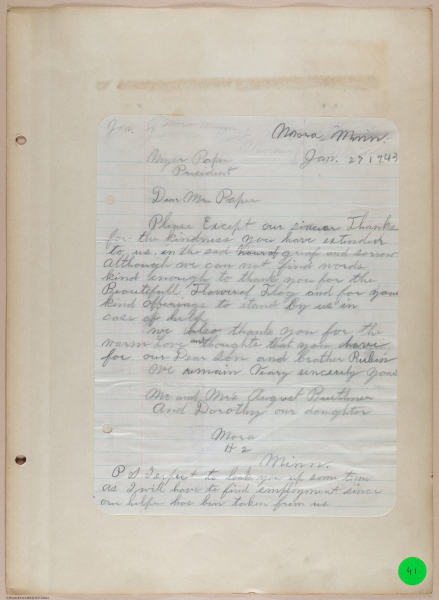 Mora, Minn.
Jan. 29 1943
Myer Paper
President
Dear Mr. Paper
Please Except our sincear Thanks
for the kindness you have extended
to us in the sad hour of grief and sorrow
Although we can not find words
kind enough to thank you for the
Beautifull Flowered Flag and for your
kind offerings to stand by us in
case of help
We also thank you for the
warm Love and thoughts that you have
for our Dear Son and brother Rubin
We remain Veary sincerly yours
Mr and Mrs August
And Dorothy our daughter
Mora
# 2
Minn.
P S I expect to look you up some time
as I will have to find employment since
our helper has bin taken from us
41